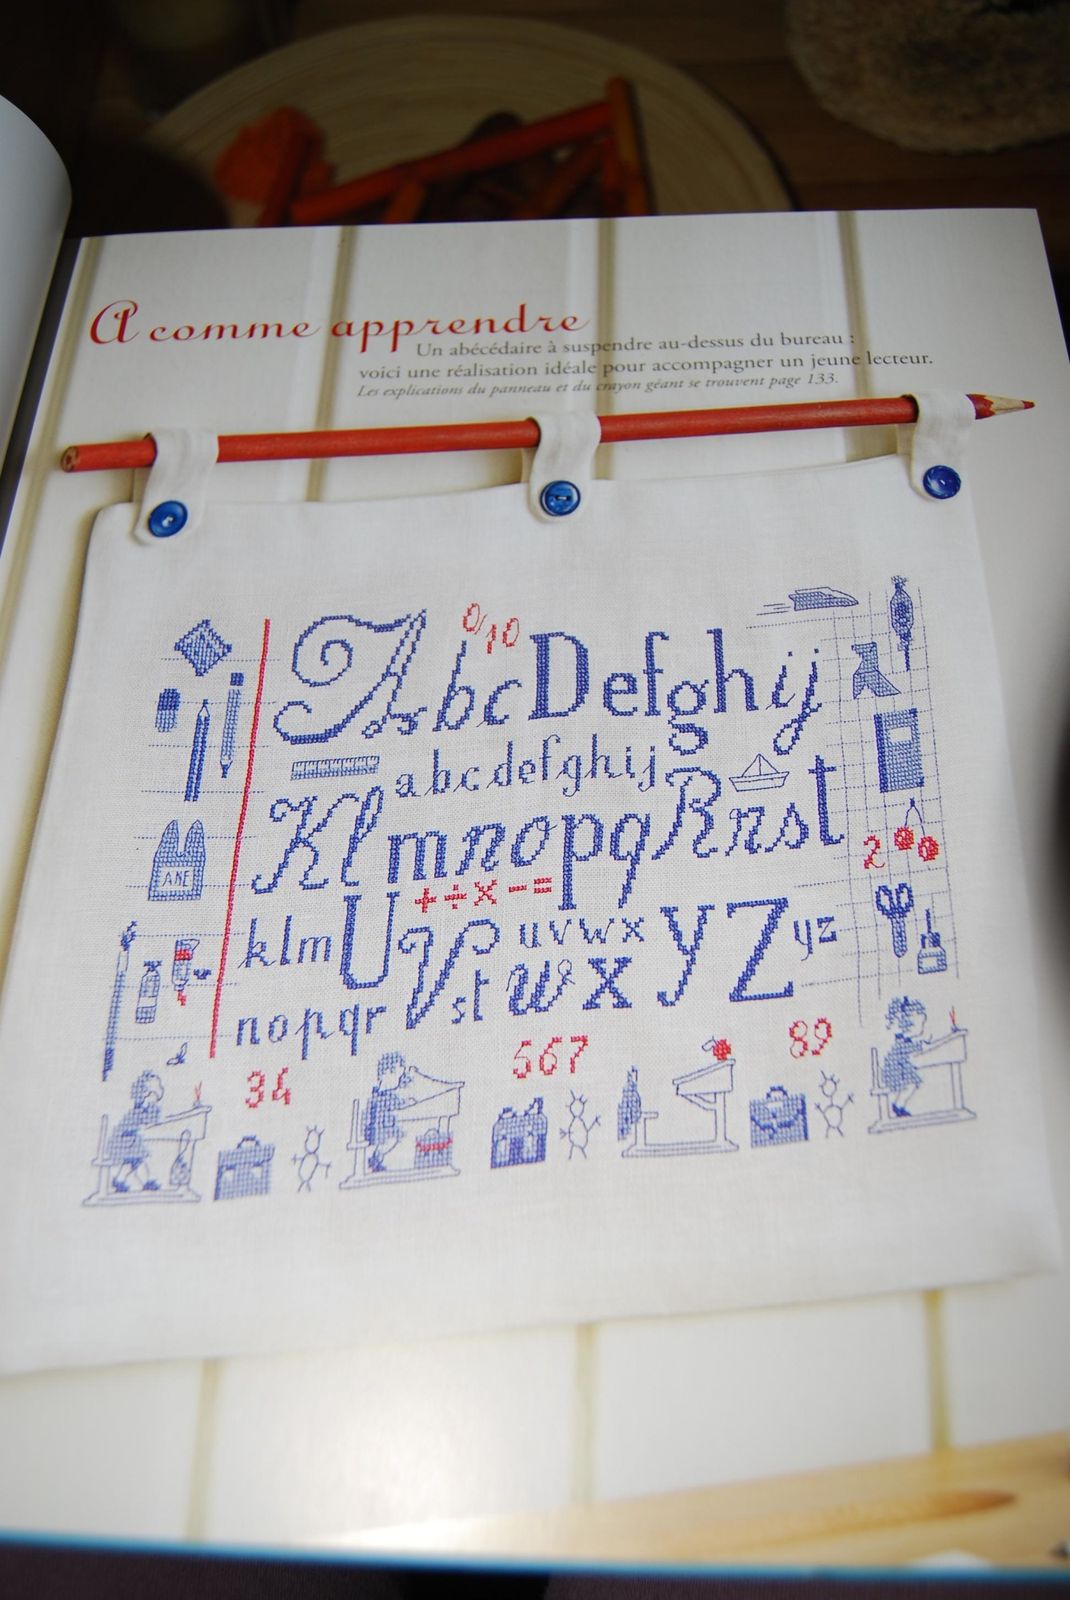 A comme apprendre
Un abécédaire à suspendre au-dessus du bureau :
voici une réalisation idéale pour accompagner un jeune lecteur.
Les explications du panneau et du crayon géant se trouvent page 133.
0/10
AbcDefghij
abcdefghij
Klmnopq Rrst
ANE
2
+÷×-=
klm U V uvwx y Z yz
nopqr st w x
34 567 89